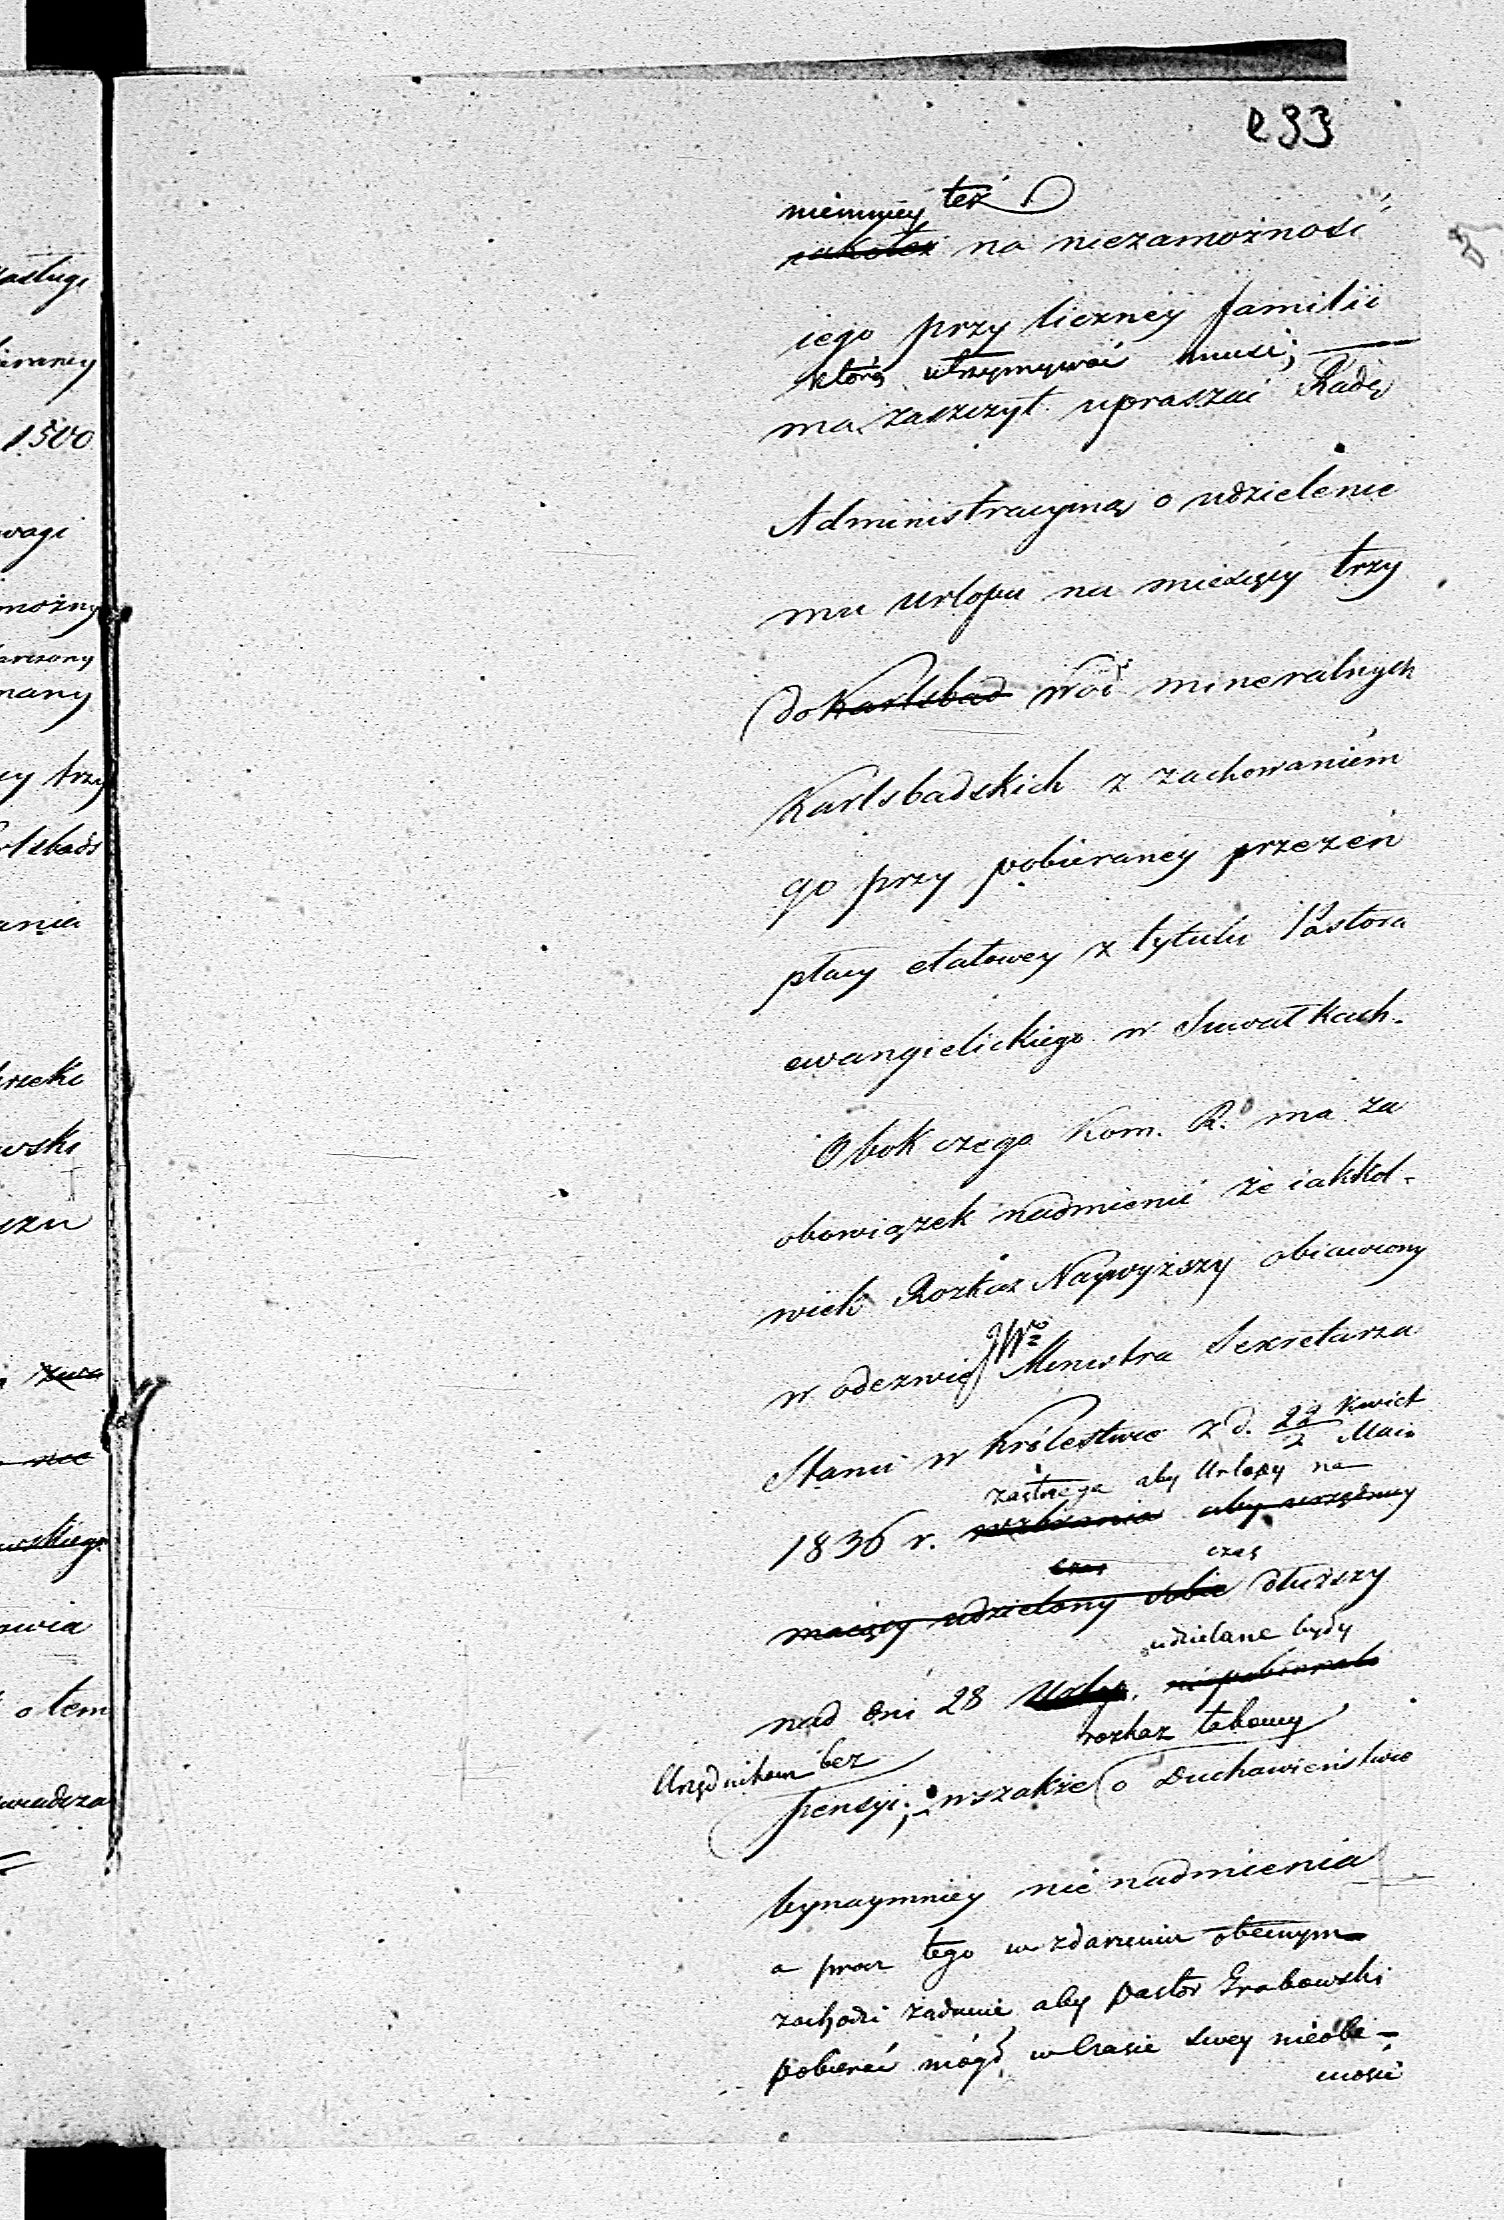 233
asługi
1500
wagi
możny
many
cy trzy
ania
wski
o tem
niemniey też
iakoteż na niezamożność
iego przy liczney familii
którą utrzymywać musi;
ma zaszczyt upraszać Radę
Administracyiną o udzielenie
mu urlopu na miesięcy trzy
do Karlsbad wód mineralnych
Karlsbadskich z zachowaniem
go przy pobieraney przezeń
płacy etatowey z tytułu Pastora
ewangielickiego w Suwałkach.
Obok czego Kom. R. ma za
obowiązek nadmienić że iakkol-
wiek Rozkaz Naywyższy obiawiony
w odezwie JWo Ministra Sekretarza
Stanu w Królestwie z d. 22/2 Kwiet Maia
zastrzega aby Urlopy na
1836 r. wzbrania aby urzędnicy
czas czas
maiący udzielony sobie dłuższy
udzielane były
nad dni 28 Urlop.
rozkaz takowy
Urzędnikom bez
pensyi; wszakże o Duchowieństwie
bynaymniey nie nadmienia
a przez tego w zdarzeniu obecnym
zachodzi żądanie aby Pastor Grabowski
pobierać mógł w czasie swey nieobe-
cności